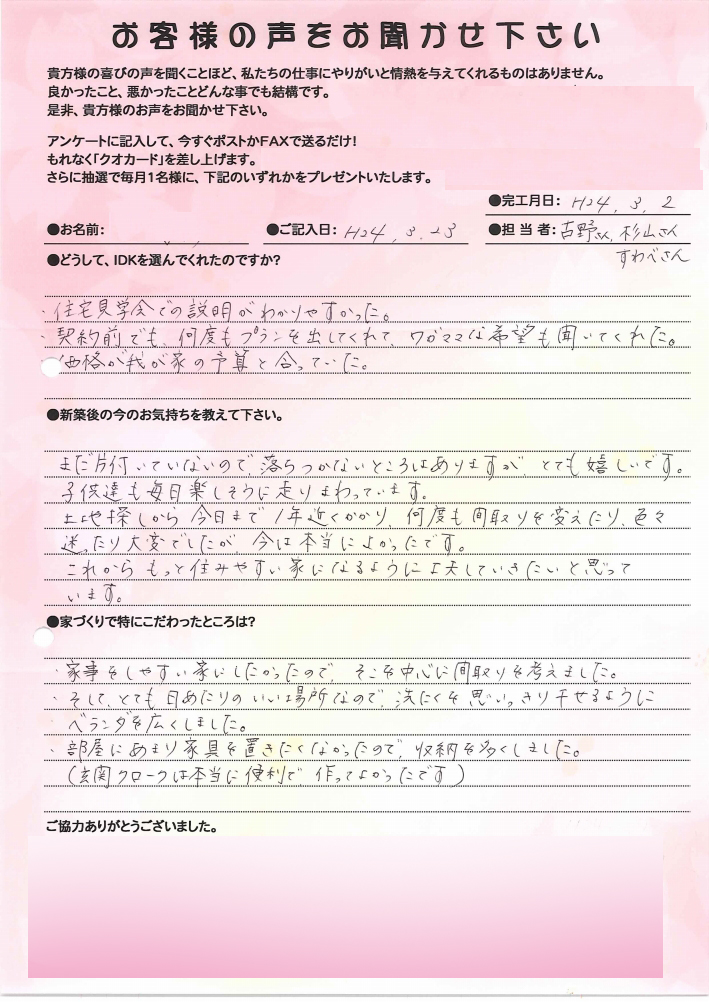 お客様の声をお聞かせ下さい
貴方様の喜びの声を聞くことほど、私たちの仕事にやりがいと情熱を与えてくれるものはありません。
良かったこと、悪かったことどんな事でも結構です。
是非、貴方様のお声をお聞かせ下さい。
アンケートに記入して、今すぐポストかFAXで送るだけ！
もれなく「クオカード」を差し上げます。
さらに抽選で毎月1名様に、下記のいずれかをプレゼントいたします。
●完工月日： H24. 3. 2
●お名前： ●ご記入日： H24. 3. 23 ●担当者： 吉野さん, 杉山さん
すわべさん
●どうして、IDKを選んでくれたのですか？
・住宅見学会での説明がわかりやすかった。
・契約前でも、何度もプランを出してくれて、ワガママな希望も聞いてくれた。
価格が我が家の予算と合っていた。
●新築後の今のお気持ちを教えて下さい。
まだ片付いていないので、落ちつかないところはありますが、とても嬉しいです。
子供達も毎日楽しそうに走りまわっています。
土地探しから今日まで1年近くかかり、何度も間取りを変えたり、色々
迷ったり大変でしたが、今は本当によかったです。
これからもっと住みやすい家になるように工夫していきたいと思って
います。
●家づくりで特にこだわったところは？
・家事をしやすい家にしたかったので、そこを中心に間取りを考えました。
・そして、とても日あたりのいい場所なので、洗たくを思いっきり干せるように
ベランダを広くしました。
・部屋にあまり家具を置きたくなかったので、収納を多くしました。
（玄関クロークは本当に便利で、作ってよかったです）
ご協力ありがとうございました。